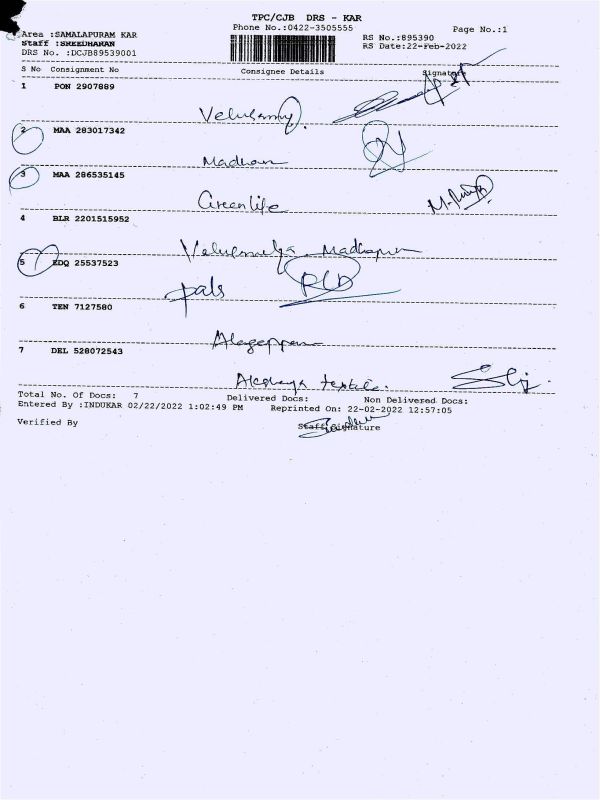 TPC/CJB DRS - KAR
Phone No.:0422-3505555 Page No.:1
Area :SAMALAPURAM KAR RS No.:895390
Staff :SREEDHARAN RS Date:22-Feb-2022
DRS No. :DCJB89539001
S No Consignment No Consignee Details Signature
1 PON 2907889
Velusamy
2 MAA 283017342
Madhan
3 MAA 286535145
Greenlife
4 BLR 2201515952
5 EDQ 25537523
pals
6 TEN 7127580
Alagappan
7 DEL 528072543
textile.
Total No. Of Docs: 7 Delivered Docs: Non Delivered Docs:
Entered By :INDUKAR 02/22/2022 1:02:49 PM Reprinted On: 22-02-2022 12:57:05
Verified By Staff Signature